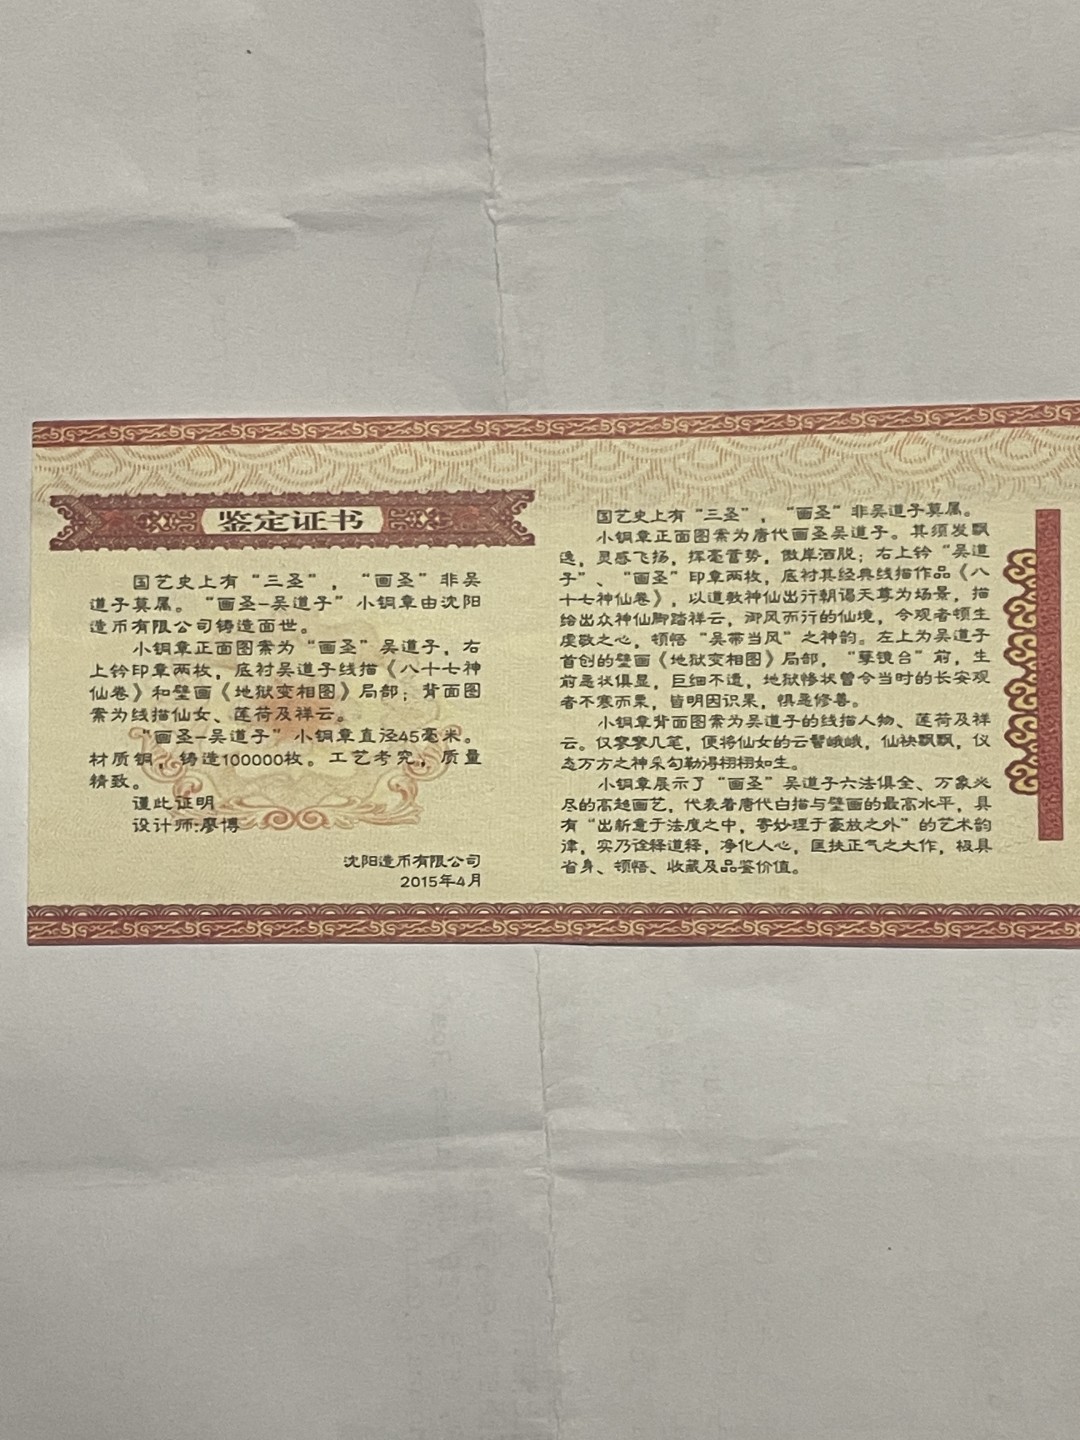 鉴定证书
国艺史上有“三圣”，“画圣”非吴
道子莫属。“画圣-吴道子”小铜章由沈阳
造币有限公司铸造面世。
小铜章正面图案为“画圣”吴道子，右
上钤印章两枚，底衬吴道子线描《八十七神
仙卷》和壁画《地狱变相图》局部；背面图
案为线描仙女、莲荷及祥云。
“画圣-吴道子”小铜章直径45毫米。
材质铜，铸造100000枚。工艺考究，质量
精致。
谨此证明
设计师:廖博
沈阳造币有限公司
2015年4月
国艺史上有“三圣”，“画圣”非吴道子莫属。
小铜章正面图案为唐代画圣吴道子。其须发飘
逸，灵感飞扬，挥毫蓄势，傲岸洒脱；右上钤“吴道
子”、“画圣”印章两枚，底衬其经典线描作品《八
十七神仙卷》，以道教神仙出行朝谒天尊为场景，描
绘出众神仙脚踏祥云，御风而行的仙境，令观者顿生
虔敬之心，顿悟“吴带当风”之神韵。左上为吴道子
首创的壁画《地狱变相图》局部，“孽镜台”前，生
前恶状俱显，巨细不遗，地狱惨状曾令当时的长安观
者不寒而栗，皆明因识果，惧恶修善。
小铜章背面图案为吴道子的线描人物、莲荷及祥
云。仅寥寥几笔，便将仙女的云髻峨峨，仙袂飘飘，仪
态万方之神采勾勒得栩栩如生。
小铜章展示了“画圣”吴道子六法俱全、万象必
尽的高超画艺，代表着唐代白描与壁画的最高水平，具
有“出新意于法度之中，寄妙理于豪放之外”的艺术韵
律，实乃诠释道释，净化人心，匡扶正气之大作，极具
省身、顿悟、收藏及品鉴价值。